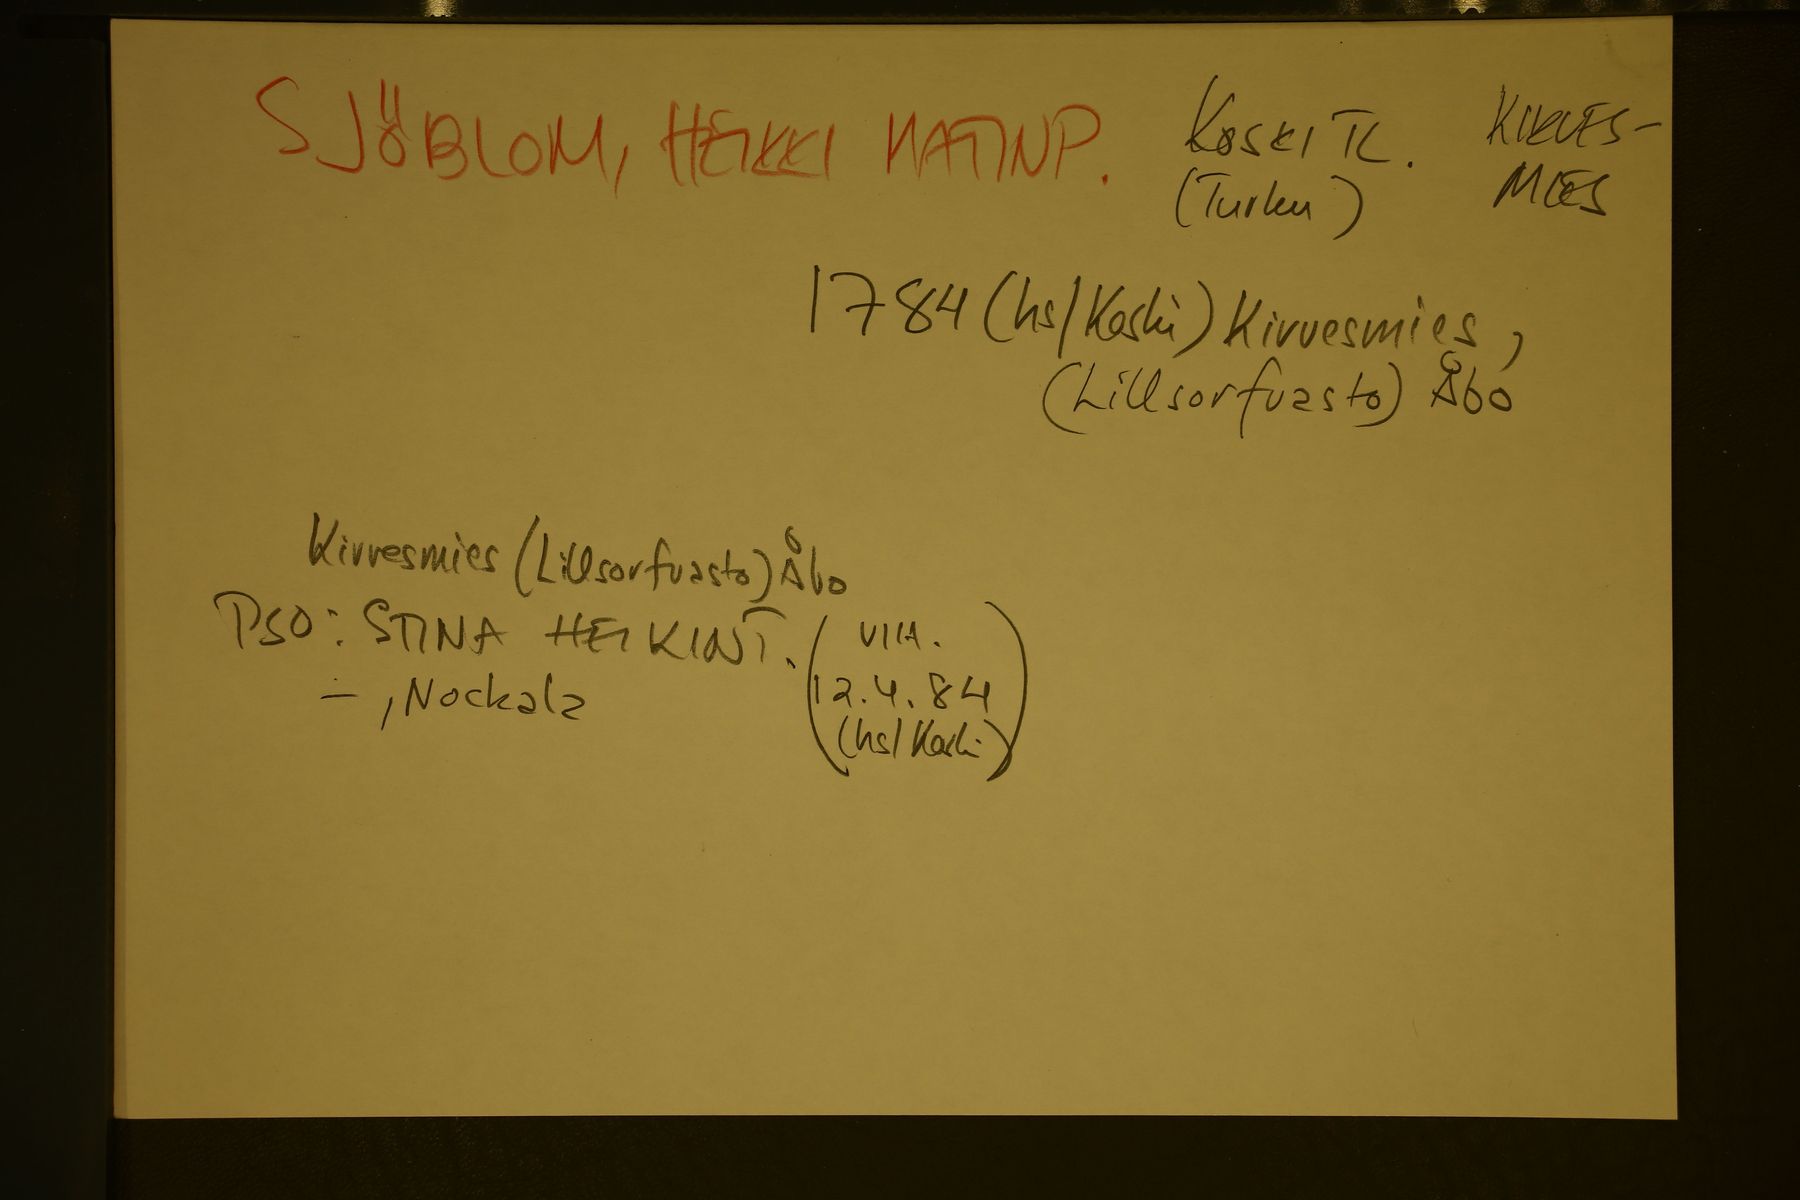 SJÖBLOM, HEIKKI MATINP. KOSKI TL. KIRVES-
(Turku) MIES
1784 (hs/Koski) Kirvesmies,
(Lillsorfvasto) Åbo
Kirvesmies (Lillsorfvasto) Åbo
PSO: STINA HEIKINT. (VIH.
–, Nockala 12.4.84
(hs/Koski))